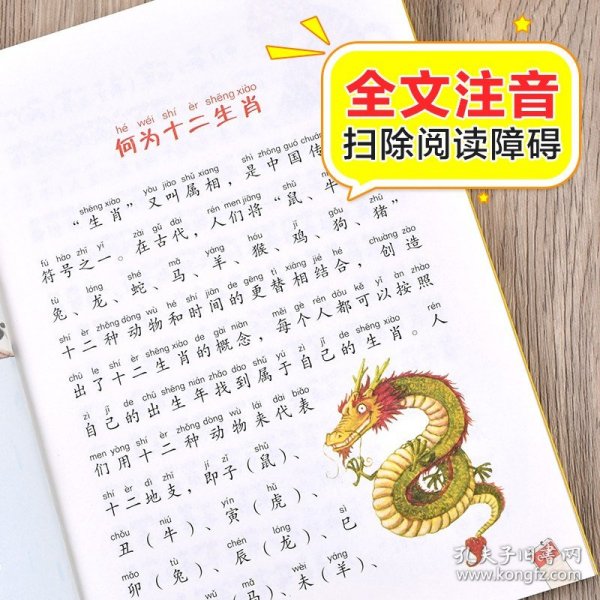 全文注音
扫除阅读障碍
hé wéi shí èr shēng xiào
何为十二生肖
shēng xiào yòu jiào shǔ xiàng shì zhōng guó chuán
“生肖”又叫属相，是中国传
fú hào zhī yī zài gǔ dài rén men jiāng shǔ niú
符号之一。在古代，人们将“鼠、牛
tù lóng shé mǎ yáng hóu jī gǒu zhū
兔、龙、蛇、马、羊、猴、鸡、狗、猪”
shí èr zhǒng dòng wù hé shí jiān de gēng tì xiāng jié hé chuàng zào
十二种动物和时间的更替相结合，创造
chū le shí èr shēng xiào de gài niàn měi gè rén dōu kě yǐ àn zhào
出了十二生肖的概念，每个人都可以按照
zì jǐ de chū shēng nián zhǎo dào shǔ yú zì jǐ de shēng xiào rén
自己的出生年找到属于自己的生肖。人
men yòng shí èr zhǒng dòng wù lái dài biǎo
们用十二种动物来代表
shí èr dì zhī jí zǐ shǔ
十二地支，即子（鼠）、
chǒu niú yín hǔ
丑（牛）、寅（虎）、
mǎo tù chén lóng sì
卯（兔）、辰（龙）、巳
mǎ wèi yáng
（马）、未（羊）、
孔夫子旧书网
www.kongfz.com